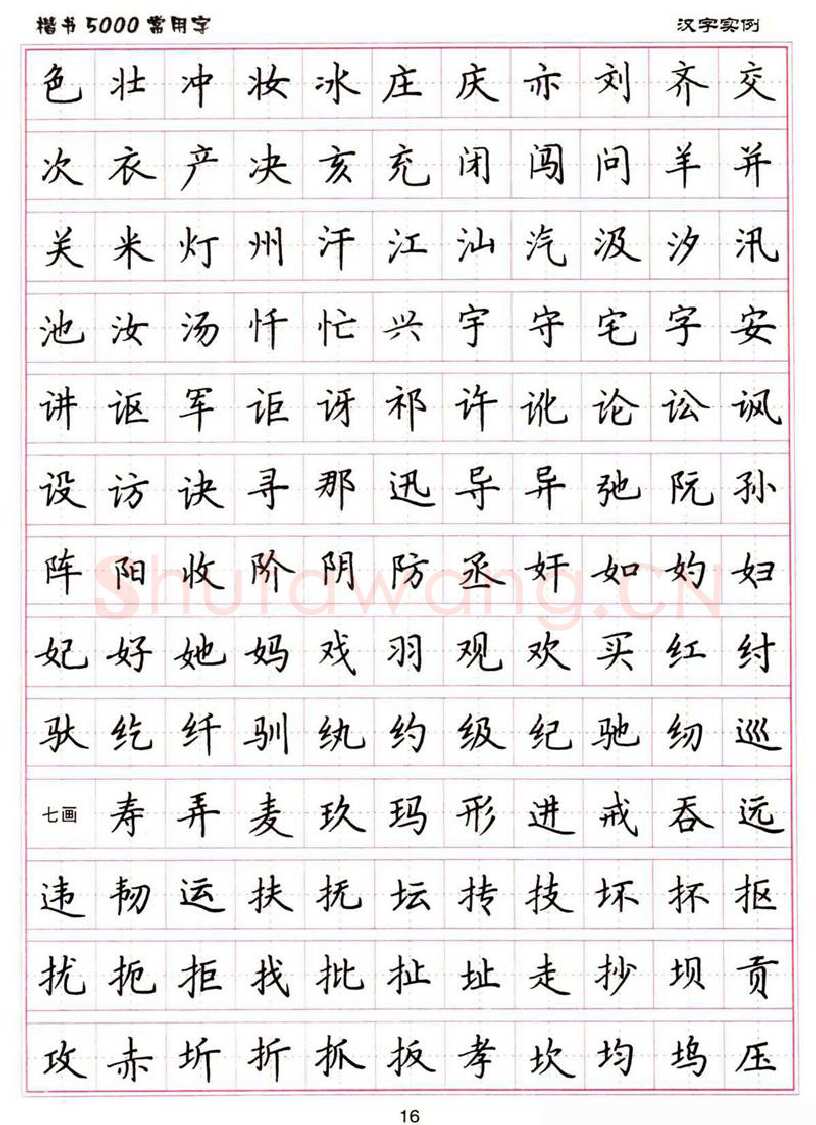 楷书5000常用字 汉字实例
色壮冲妆冰庄庆亦刘齐交
次衣产决亥充闭闯问羊并
关米灯州汗江汕汽汲汐汛
池汝汤忏忙兴宇守宅字安
讲讴军讵讶祁许讹论讼讽
设访诀寻那迅导异弛阮孙
阵阳收阶阴防丞奸如妁妇
妃好她妈戏羽观欢买红纣
驮纥纤驯纨约级纪驰纫巡
七画寿弄麦玖玛形进戒吞远
违韧运扶抚坛抟技坏抔抠
扰扼拒找批扯址走抄坝贡
攻赤圻折抓扳孝坎均坞压
Shufawang.CN
16